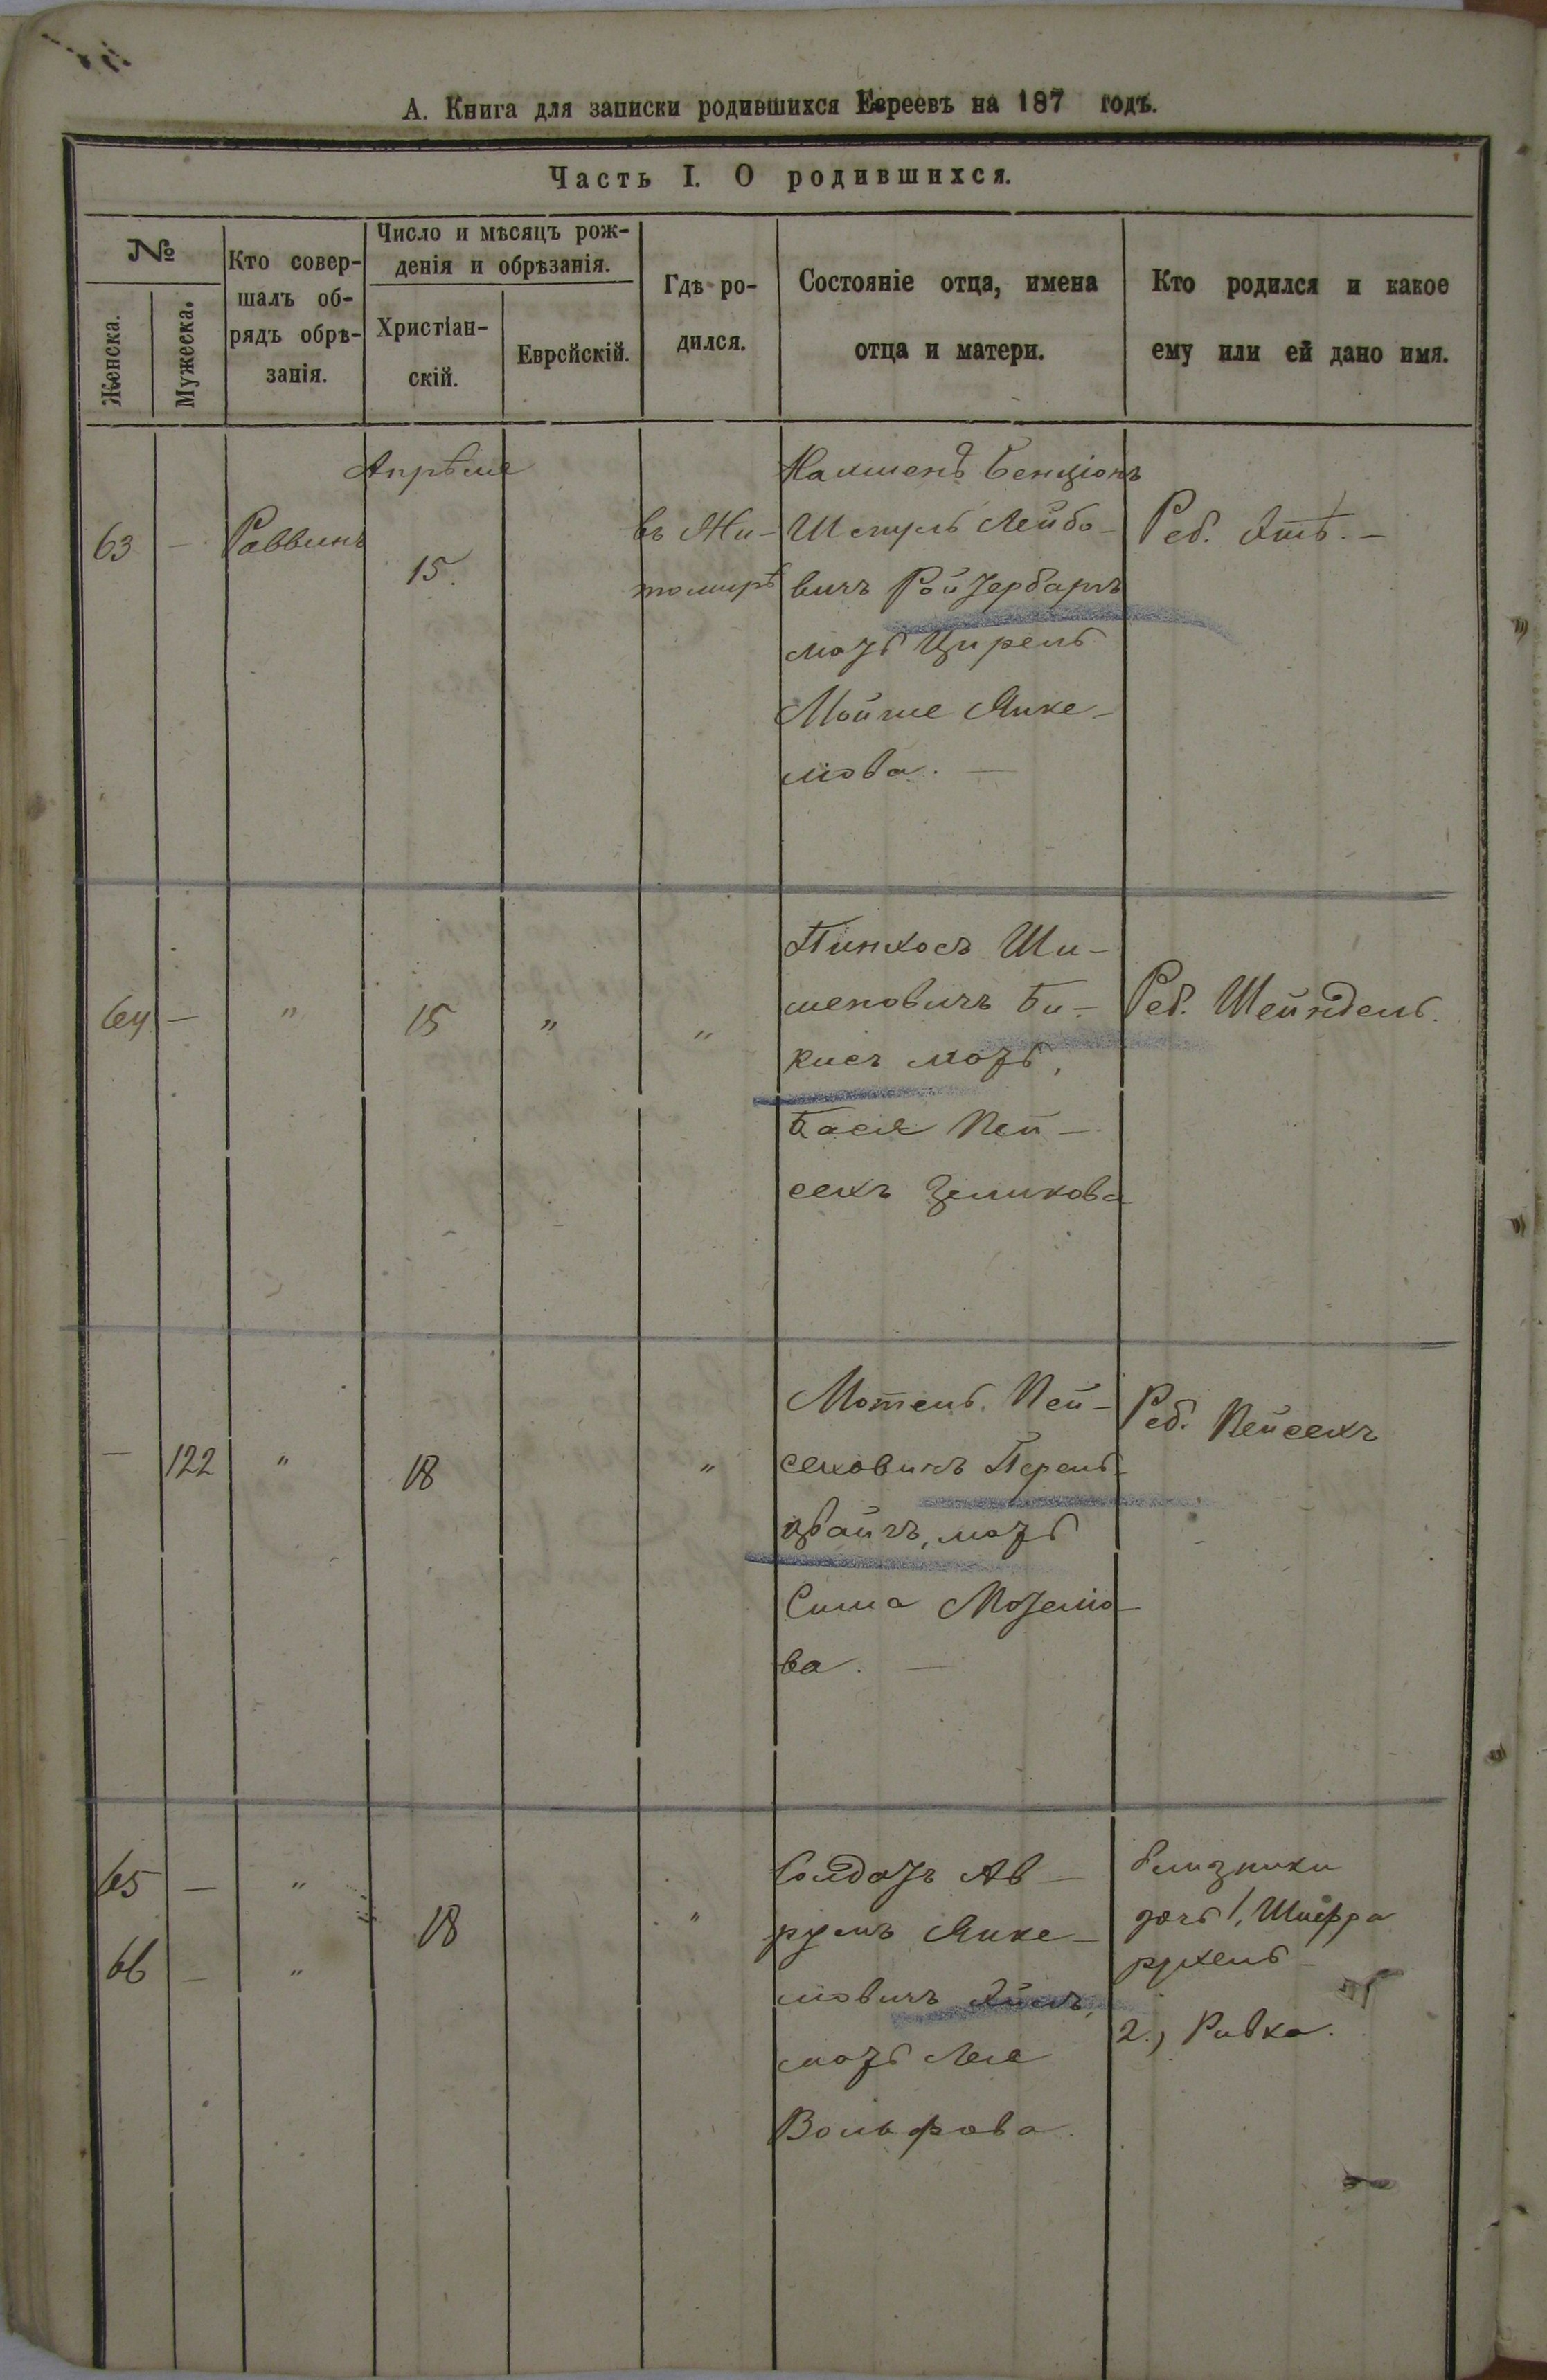 А. Книга для записки родившихся Евреевъ на 187 годъ.
Часть I. О родившихся.
№
Женска.
Мужеска.
Кто совер-
шалъ об-
рядъ обрѣ-
занія.
Число и мѣсяцъ рож-
денія и обрѣзанія.
Христіан-
скій.
Еврейскій.
Гдѣ ро-
дился.
Состояніе отца, имена
отца и матери.
Кто родился и какое
ему или ей дано имя.
63 — Раввинъ
Апрѣля
15.
въ Жи-
томирѣ
Бенціонъ
Шмуль Лейбо-
вичъ Ройзербармъ
мать Цирель
Мойше Янке-
лова. —
Реб. —
64 — " 15 " "
Пинхосъ Ши-
меновичъ Би-
кисъ мать,
Бася Пей-
сехъ Зеликова
Реб. Шейндель.
— 122 " 18 "
Мотель Пей-
сеховичъ Перель-
цвайгъ, мать
Сима Мотелю-
ва. —
Реб. Пейсехъ
65 — " 18 "
66 — "
Солдатъ Ав-
румъ Янке-
ловичъ
мать Лея
Вольфова.
близники
дочь 1, Шифра
рухель —
2., Ривка.